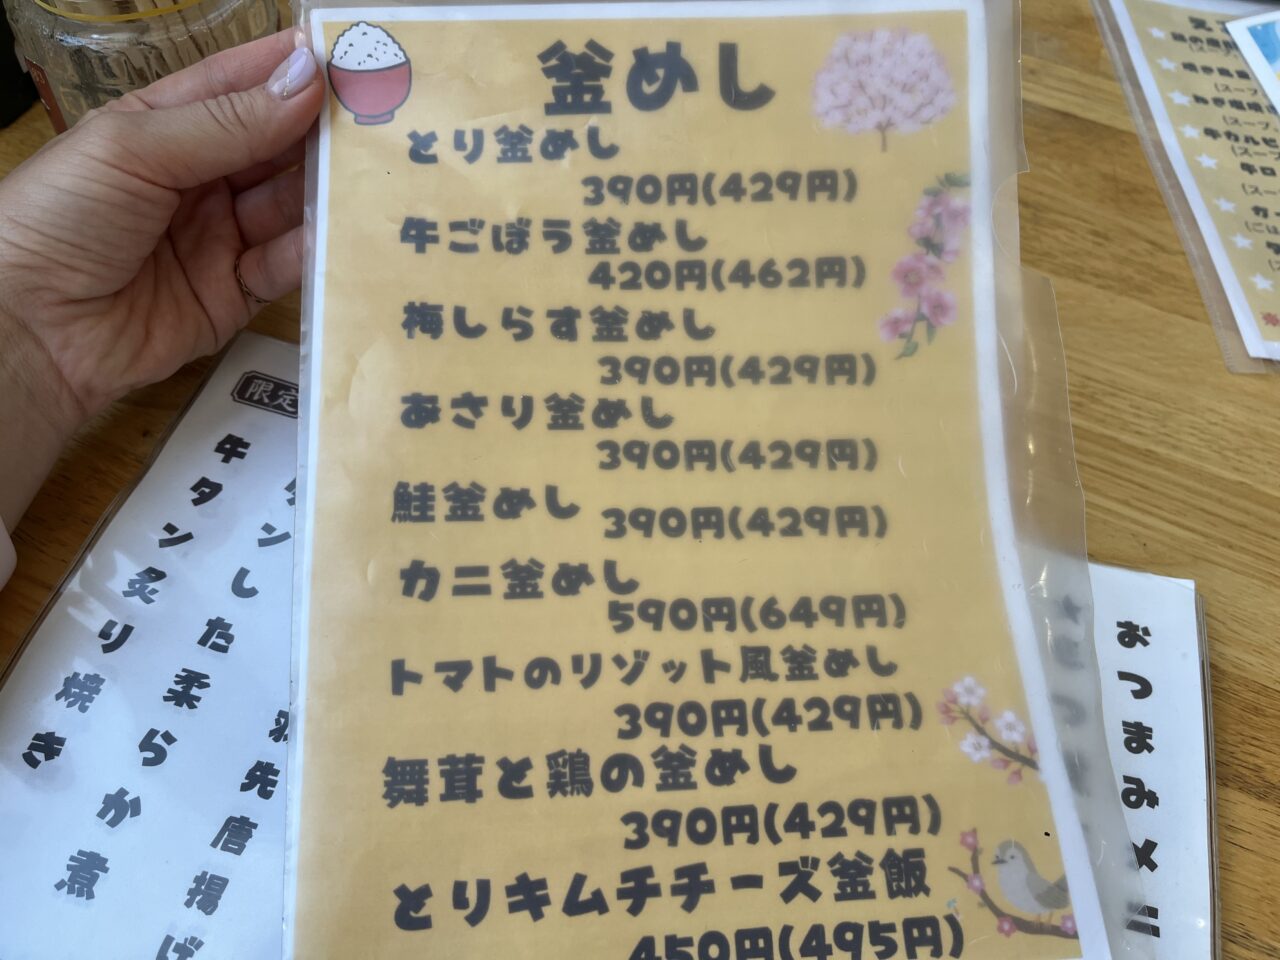 釜めし
とり釜めし
390円(429円)
牛ごぼう釜めし
420円(462円)
梅しらす釜めし
390円(429円)
あさり釜めし
390円(429円)
鮭釜めし 390円(429円)
カニ釜めし
590円(649円)
トマトのリゾット風釜めし
390円(429円)
舞茸と鶏の釜めし
390円(429円)
とりキムチチーズ釜飯
450円(495円)
限定
牛タン炙り焼き
タンした柔らか煮
先唐揚げ
おつまみメニ
牛カルビ